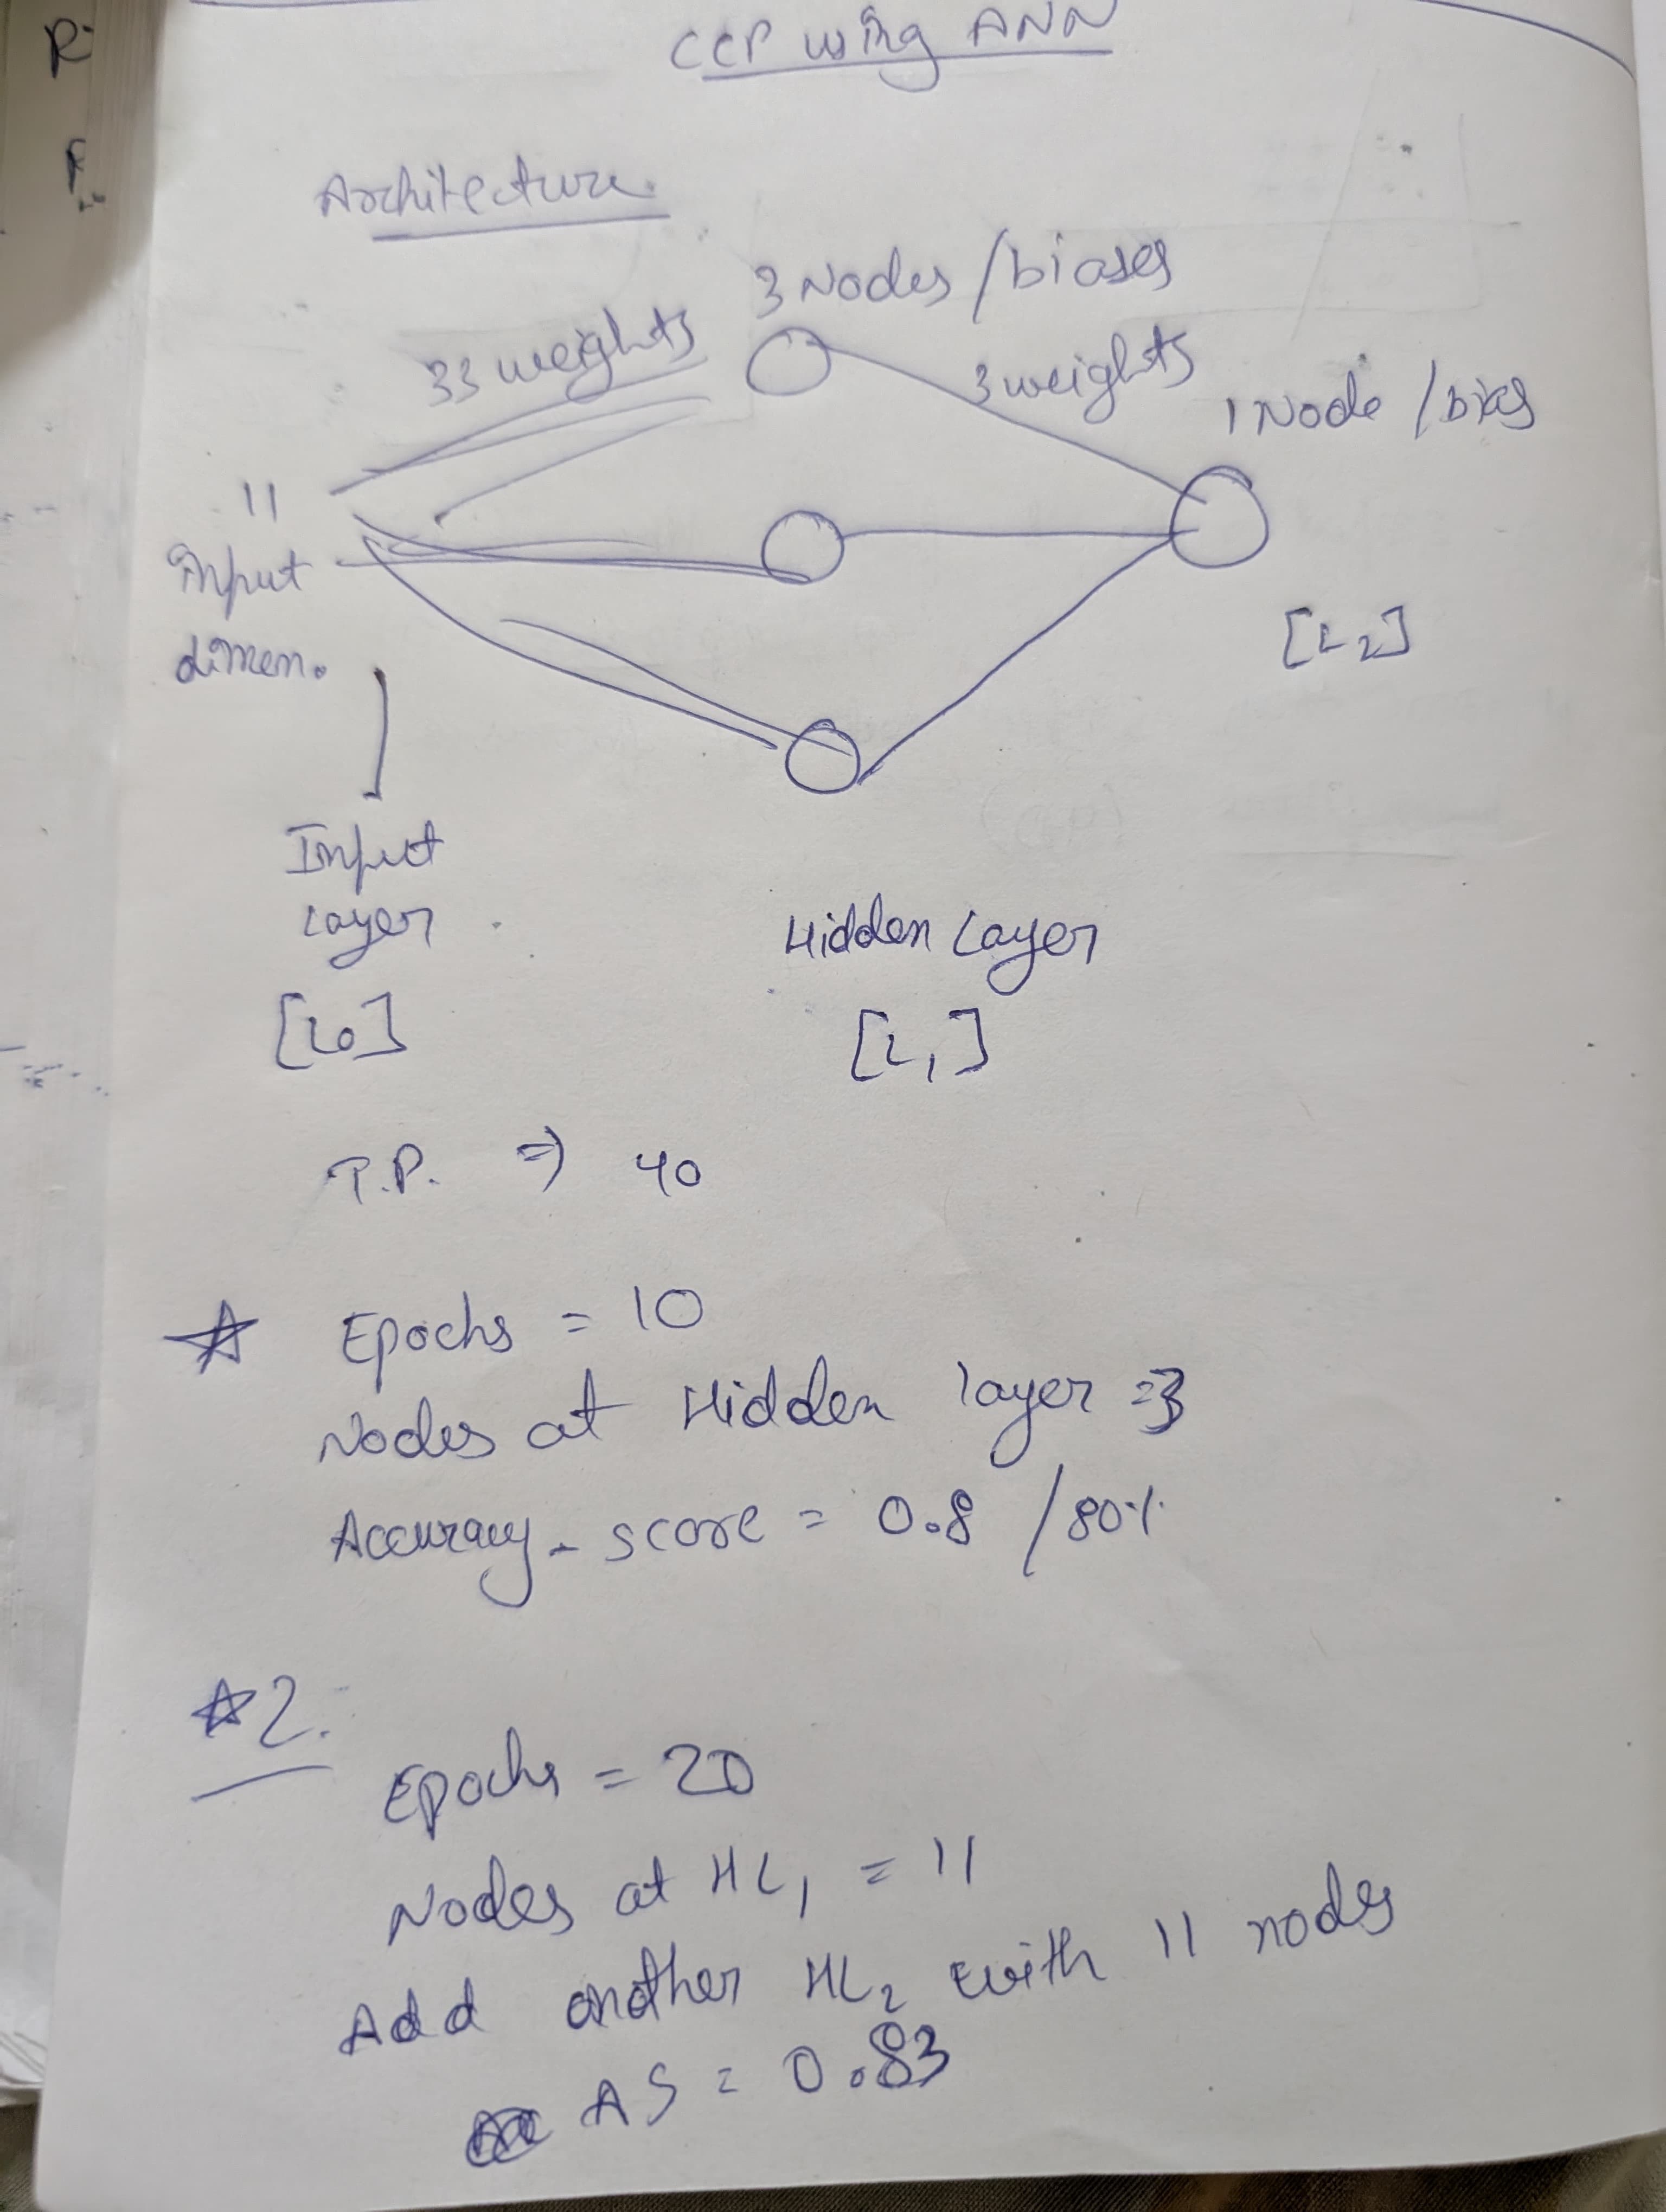 R
CCP using ANN
Architecture
3 Nodes / biases
33 weights
3 weights
1 Node / bias
11
Input
dimen.
[L2]
Input
Layer
[L0]
Hidden Layer
[L1]
T.P. => 40
Epochs = 10
Nodes at Hidden layer = 3
Accuracy_score = 0.8 / 80%
2.
Epochs = 20
Nodes at HL1 = 11
Add another HL2 with 11 nodes
AS = 0.83